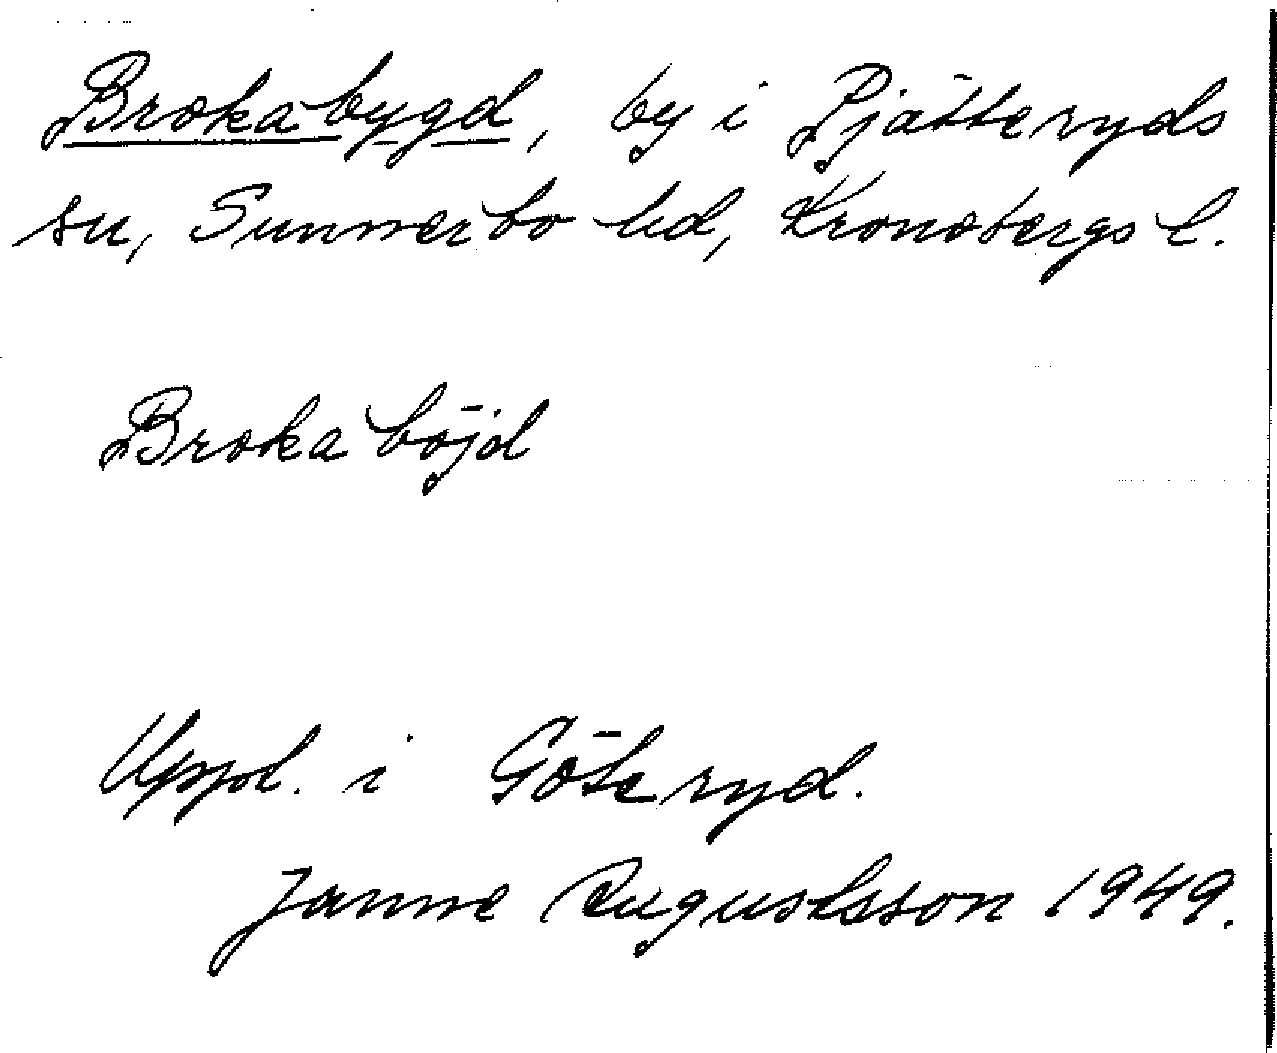 Brokabygd, by i Pjätteryds
sn, Sunnerbo hd, Kronobergs l.
Brokaböjd
Uppl. i Göteryd.
Janne Augustsson 1949.